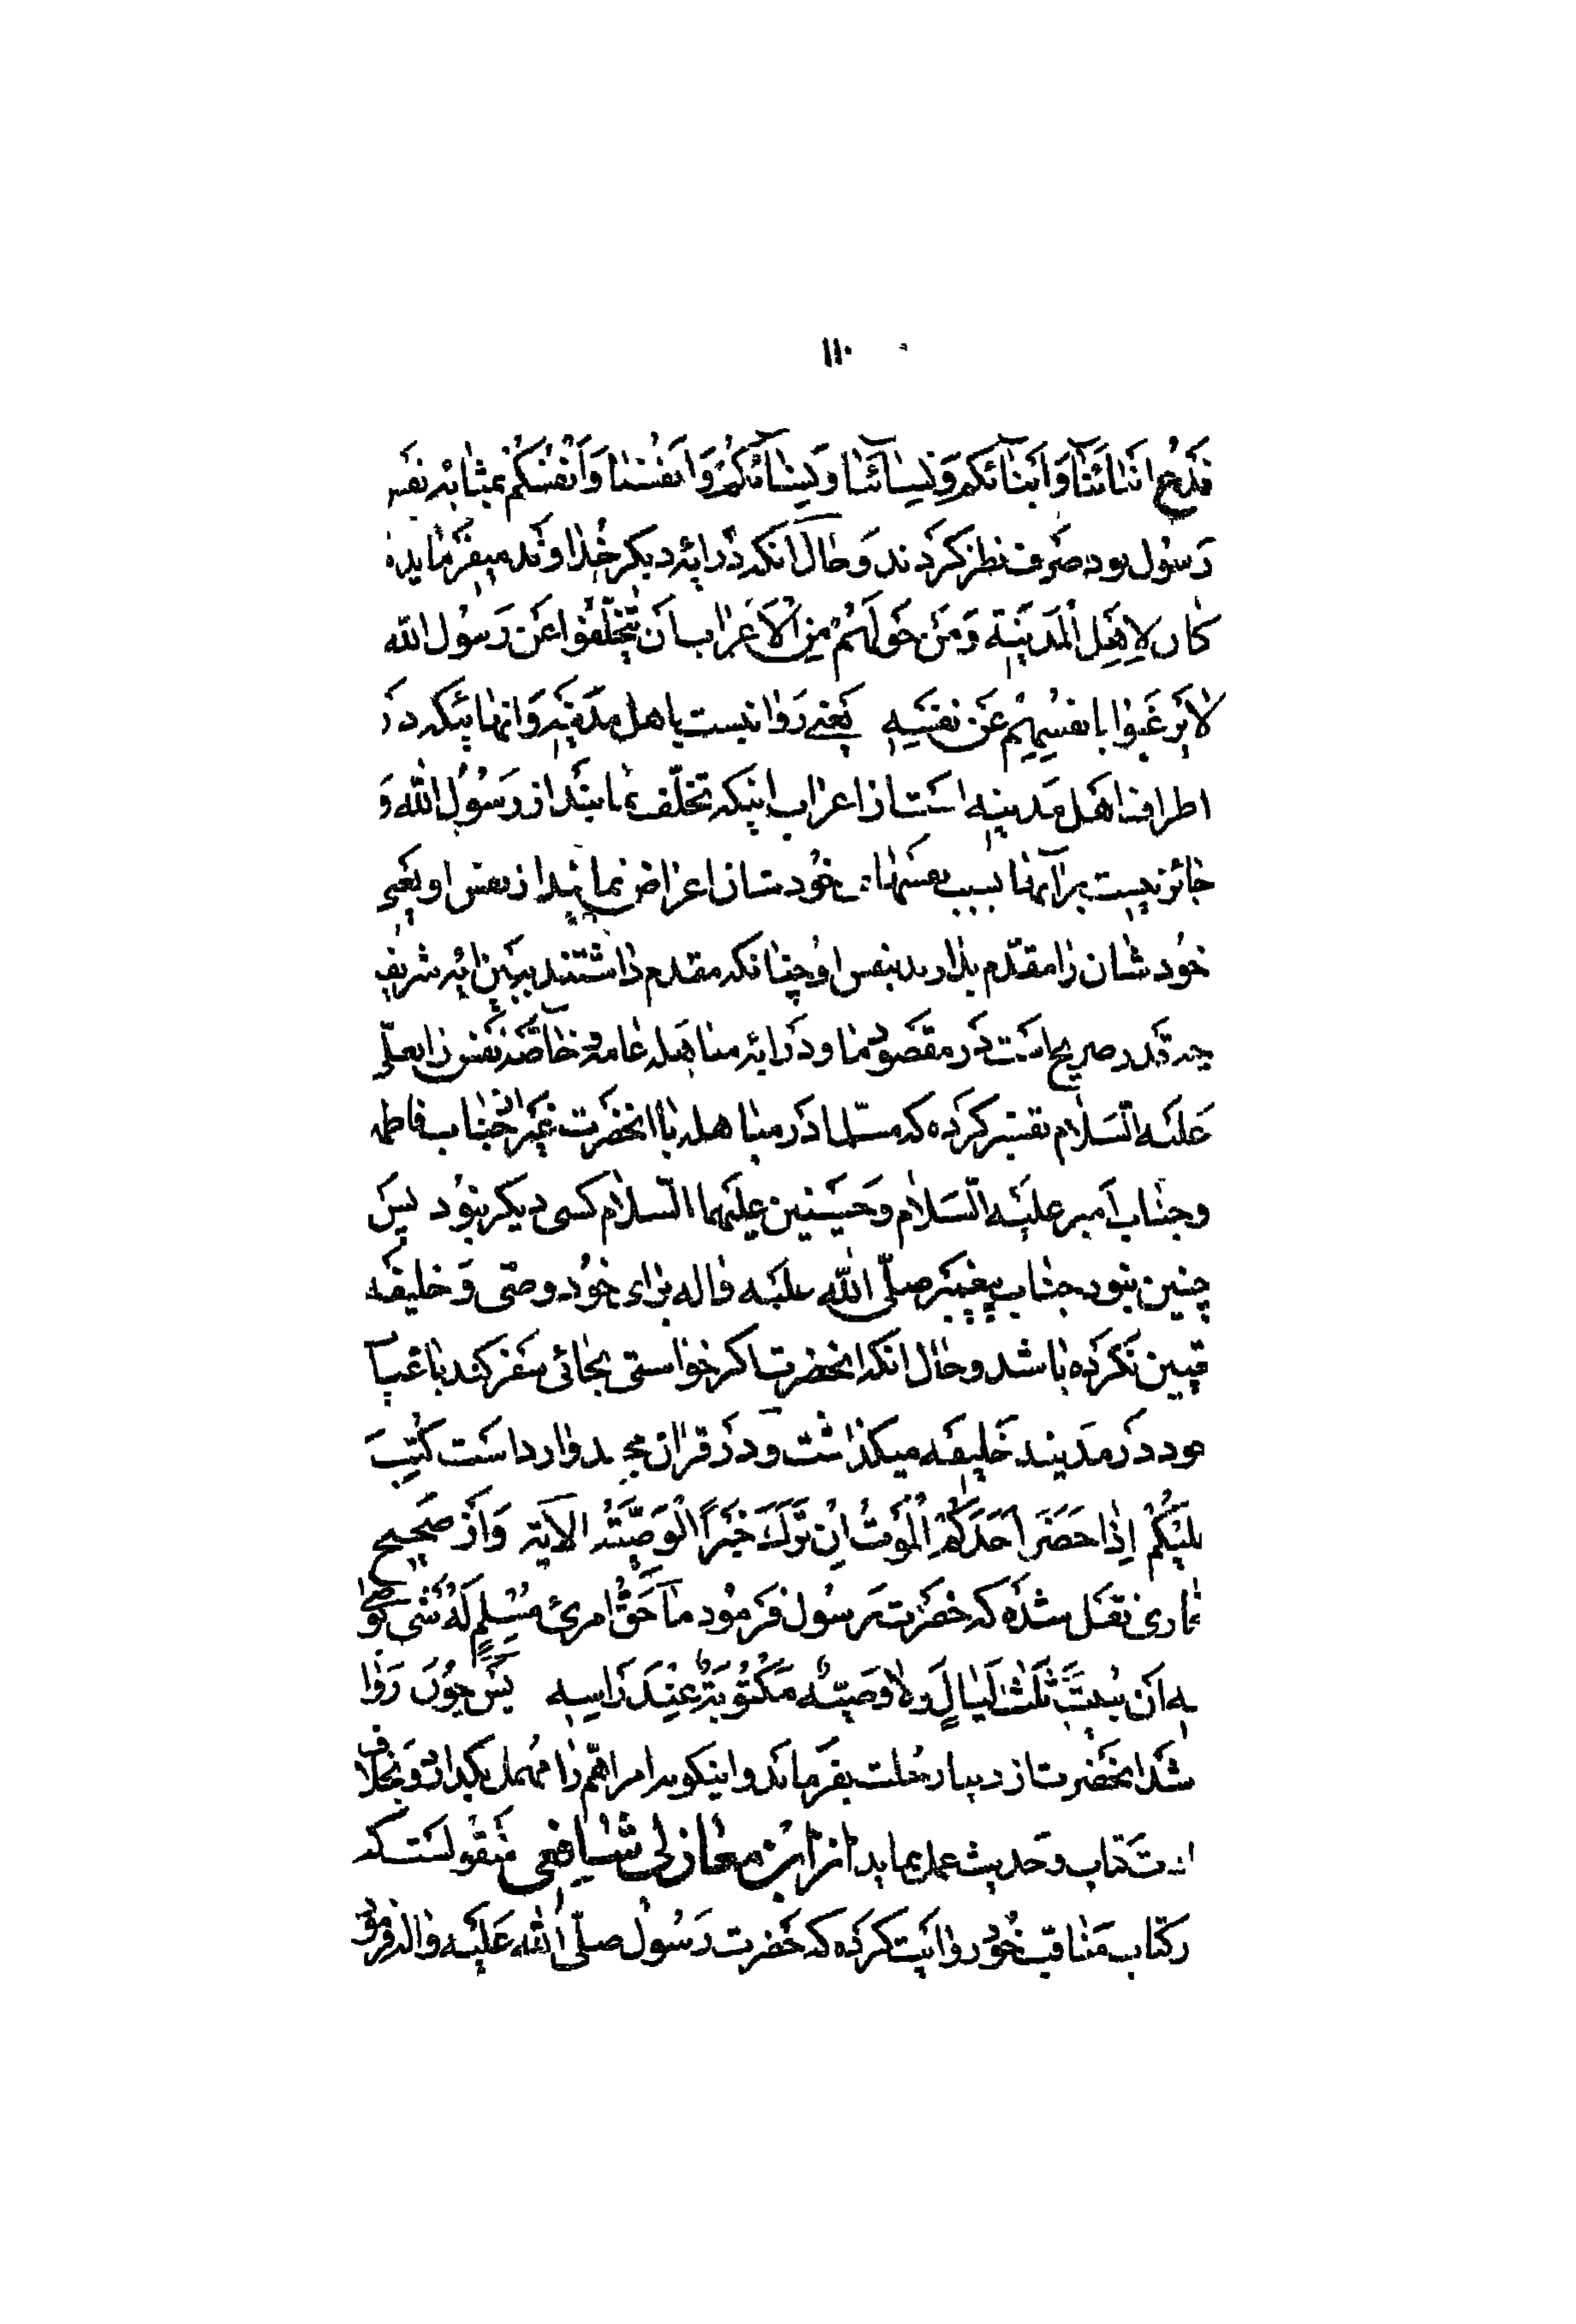 ۱۱۰
نَدْعُ اَبْنائَنا وَاَبْنائَكُمْ وَنِسائَنا وَنِسائَكُمْ وَاَنْفُسَنا وَاَنْفُسَكُمْ بمثابه نفس
رسول بود صرف نظر کردند وحال آنکه در ایه دیکر خداوند میفرماید
کان لِاَهْلِ الْمَدینَةِ وَمَنْ حَوْلَهُمْ مِنَ الْاَعْرابِ اَنْ یَتَخَلَّفُوا عَنْ رَسُولِ الله
لا یَرْغَبُوا بِاَنْفُسِهِمْ عَنْ نَفْسِهِ یعنی روا نیست باهل مدینه وانهائیکه در
اطراف اهل مدینه است از اعراب اینکه تخلّف نمایند از رسول الله و
جائز نیست برآنها بسبب نفسهای خودشان اعراض نمایند از نفس او یعنی
خودشان را مقدّم بدارند بنفس او چنانکه مقدم داشتند ببین ایه شریفه
چه قدر صریح است در مقصود ما ودر ایه مباهله عامه وخاصّه نفس را بعلی
عَلَیْهِ السَّلام تفسیر کرده که مسلّما در مباهله با انحضرت غیر از جناب فاطمه
وجناب امیر علیه السَّلام وحَسَنین علیهما السّلام کسی دیکر نبود پس
چنین نبود جناب پیغمبر صلّی الله علیه واله برای خود وصّی وخلیفه
تعیین نکرده باشد وحال انکه انحضرت اکر خواستی بجائی سفر کند باغیاب
خود در مدینه خلیفه میکذاشت ودر قران مجید وارد است کُتِبَ
عَلَیْکُمْ اِذا حَضَرَ اَحَدَکُمُ الْمَوْتُ اِنْ تَرَکَ خَیْراً الْوَصِیَّةُ الآیة وَاز صَحیح
بخاری نقل شده که حضرت رسول فرمود ما حَقُّ امْرِئٍ مُسْلِمٍ لَهُ شَی یُوصی
بِهِ اَنْ یَبیتَ ثَلاثَ لَیالٍ اِلّا وَصِیَّتُهُ مَکْتُوبَةٌ عِنْدَ رَاْسِهِ پَس چون روا
شد انحضرت از دنیا رحلت بفرماید واینکونه امر اهمّ را مُهمل بکذارد وبخلاف
کتاب وحدیث عمل نماید از ابن مغازلی شافعی منقولست که
در کتاب مناقب خود روایت کرده که حضرت رسول صلّی الله علیه واله فرمود